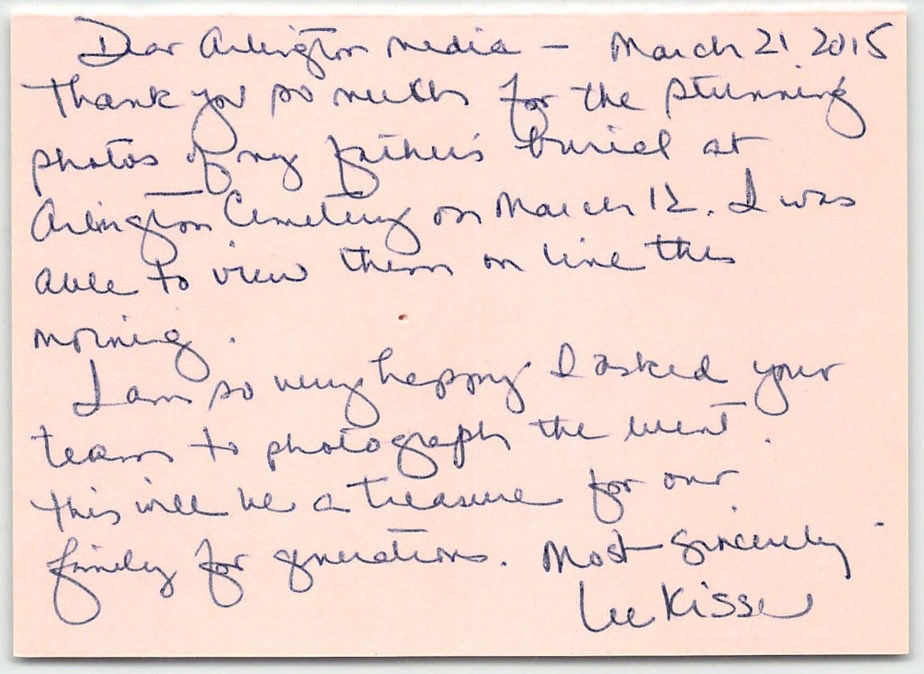 Dear Arlington Media – March 21 2015
Thank you so much for the stunning
photos of my father's burial at
Arlington Cemetery on March 12. I was
able to view them on line this
morning.
I am so very happy I asked your
team to photograph the event.
This will be a treasure for our
family for generations. Most sincerely
Lee Kisse